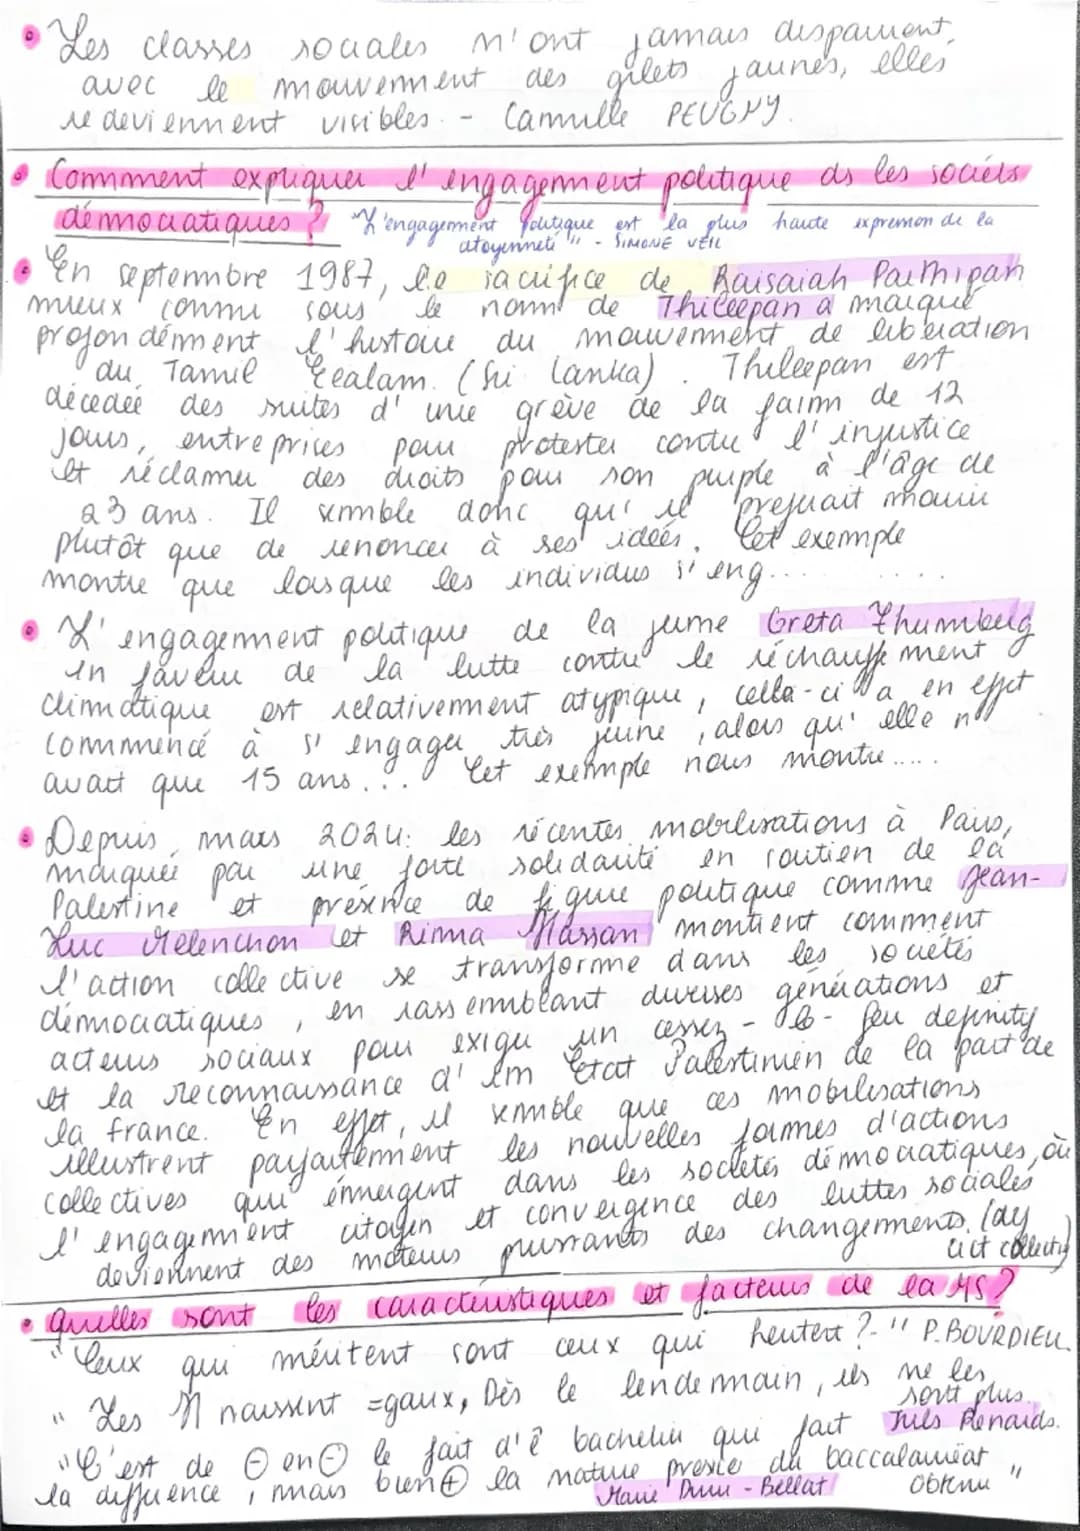 • Les classes sociales n'ont jamais disparuent,
avec le mouvement des gilets jaunes, elles
redeviennent visibles. - Camille PEUGNY.
• Comment expliquer l'engagement politique ds les sociéts
démocratiques ? "L'engagement politique est la plus haute expression de la
citoyenneté" - SIMONE VEIL
• En septembre 1987, le sacrifice de Raisaiah Parthipan
mieux connu sous le nom de Thileepan a marqué
profondément l'histoire du mouvement de libération
du Tamil Eealam. (Sri Lanka). Thileepan est
décedée des suites d'une grève de la faim de 12
jours, entreprices pour protester contre l'injustice
et réclamer des droits pour son peuple à l'âge de
23 ans. Il semble donc qu'il préférait mourir
plutôt que de renoncer à ses idées. Cet exemple
montre que lorsque les individus s'eng... ....
• L'engagement politique de la jeune Greta Thumberg
en faveur de la lutte contre le réchauffement
climatique est relativement atypique, celle-ci a en effet
commencé à s'engager très jeune, alors qu'elle n'
avait que 15 ans... Cet exemple nous montre.....
• Depuis mars 2024: les récentes mobilisations à Paris,
marquée par une forte solidarité en soutien de la
Palestine et présence de figure politique comme Jean-
Luc Melenchon et Rima Hassan montrent comment
l'action collective se transforme dans les sociétés
démocratiques, en rassemblant diverses générations et
acteurs sociaux pour exiger un cessez-le-feu définitif
et la reconnaissance d'un Etat Palestinien de la part de
la france. En effet, il semble que ces mobilisations
illustrent parfaitement les nouvelles formes d'actions
collectives qui émergent dans les sociétés démocratiques, où
l'engagement citoyen et convergence des luttes sociales
deviennent des moteurs puissants des changements. (
act collectiv)
• Quelles sont les caractéristiques et facteurs de la MS ?
"Ceux qui méritent sont ceux qui heritent ?-" P. BOURDIEU
"Les H naissent =gaux, Dès le lendemain, ils ne les
sont plus. Juls Renards.
"C'est de ⊖ en ⊖ le fait d'ê bachelier qui fait
la différence, mais bien ⊕ la nature précise du baccalauréat
Obtenu"
Marie Duru-Bellat